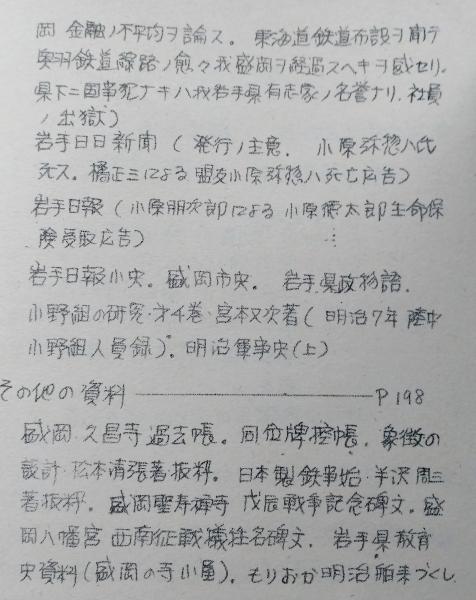 岡 金融ノ不平均ヲ論ス。 東海道鉄道布設ヲ聞テ
奥羽鉄道線路ノ愈々我盛岡ヲ経過スヘキヲ感セリ。
県下ニ国事犯ナキハ我岩手県有志家ノ名誉ナリ. 社員
ノ出獄)
岩手日日新聞 ( 発行ノ主意. 小原弥惣八氏
死ス。 橘正三による 盟友小原弥惣八死亡広告)
岩手日報 (小原朋次郎による 小原徳太郎生命保
険受取広告)
岩手日報小史。 盛岡市史。 岩手県政物語.
小野組の研究・才4巻・宮本又次著( 明治7年 陸中
小野組人員録)。 明治軍事史(上)
その他の資料 ————— P 198
盛岡・久昌寺過去帳。 同位牌控帳. 象徴の
設計・松本清張著・抜粋。 日本製鉄事始・半沢周三
著抜粋。 盛岡聖寿禅寺 戊辰戦争記念碑文. 盛
岡八幡宮 西南征戦犠牲名碑文. 岩手県教育
史資料(盛岡の寺小屋)。 もりおか明治舶来づくし